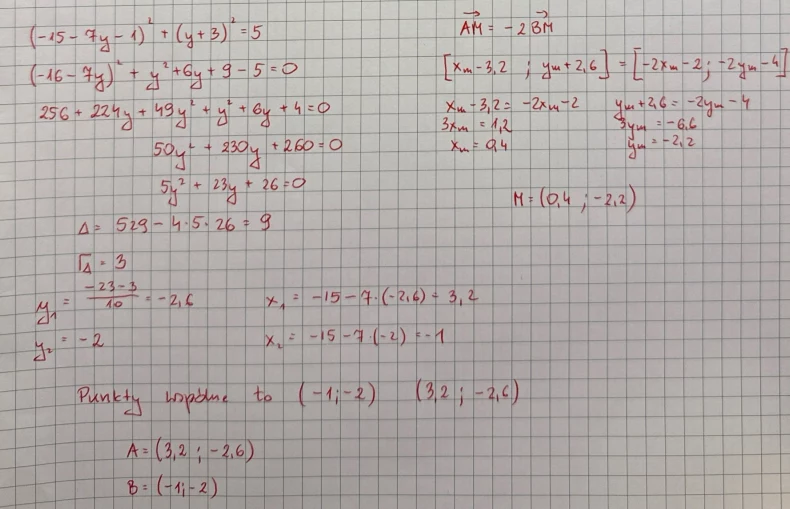 (-15-7y-1)² + (y+3)² = 5
(-16-7y)² + y² + 6y + 9 - 5 = 0
256 + 224y + 49y² + y² + 6y + 4 = 0
50y² + 230y + 260 = 0
5y² + 23y + 26 = 0
Δ = 529 - 4·5·26 = 9
√Δ = 3
y₁ = (-23-3)/10 = -2,6
x₁ = -15-7·(-2,6) = 3,2
y₂ = -2
x₂ = -15-7·(-2) = -1
Punkty wspólne to (-1;-2) (3,2 ; -2,6)
A = (3,2 ; -2,6)
B = (-1;-2)
AM→ = -2 BM→
[xₘ-3,2 ; yₘ+2,6] = [-2xₘ-2 ; -2yₘ-4]
xₘ-3,2 = -2xₘ-2
3xₘ = 1,2
xₘ = 0,4
yₘ+2,6 = -2yₘ-4
3yₘ = -6,6
yₘ = -2,2
M = (0,4 ; -2,2)